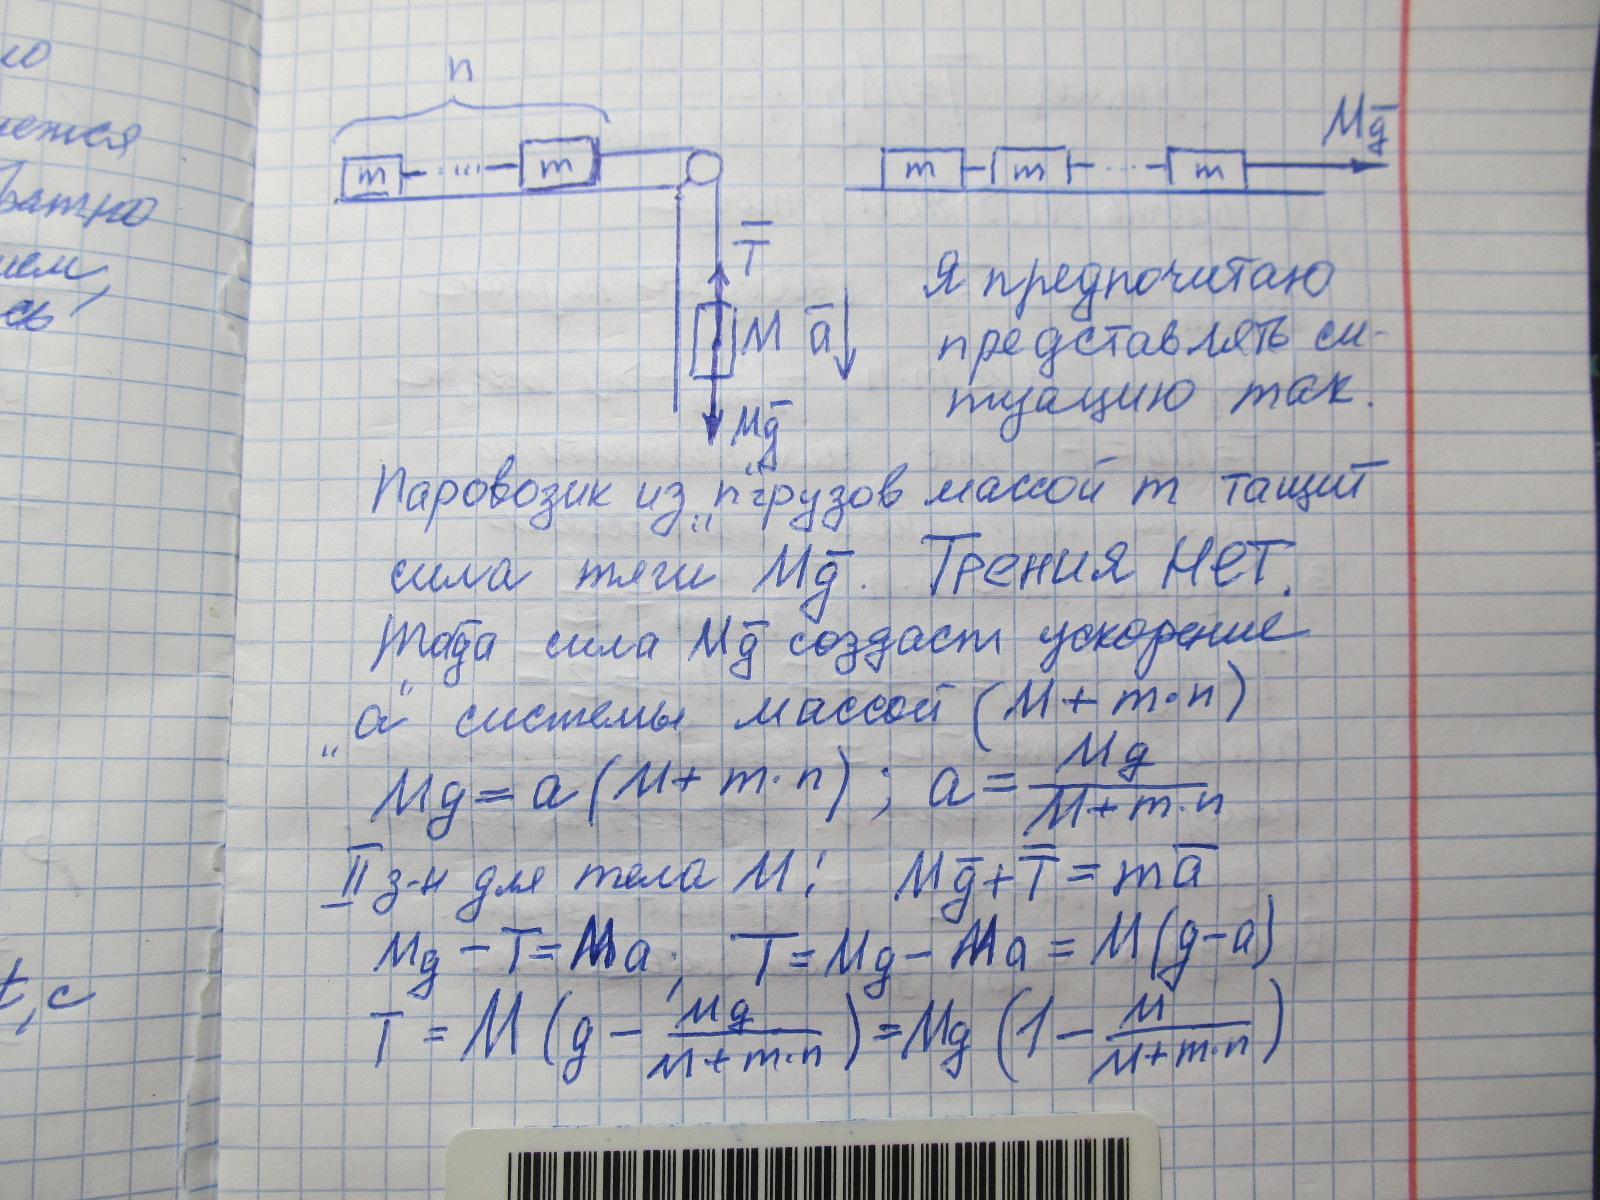 ло
n
Mg̅
яется
m - ..... - m
m - m - ..... - m
ратно
ием,
сь
T̅
M a̅
Mg̅
Я предпочитаю
представлять си-
туацию так.
Паровозик из „n" грузов массой m тащит
сила тяги Mg̅. Трения НЕТ.
Тогда сила Mg̅ создаст ускорение
„a" системы массой (M + m·n)
Mg = a (M + m·n) ; a = Mg / (M + m·n)
II з-н для тела M: Mg̅ + T̅ = ma̅
Mg - T = Ma ; T = Mg - Ma = M(g - a)
T = M (g - Mg / (M + m·n)) = Mg (1 - M / (M + m·n))
t, c